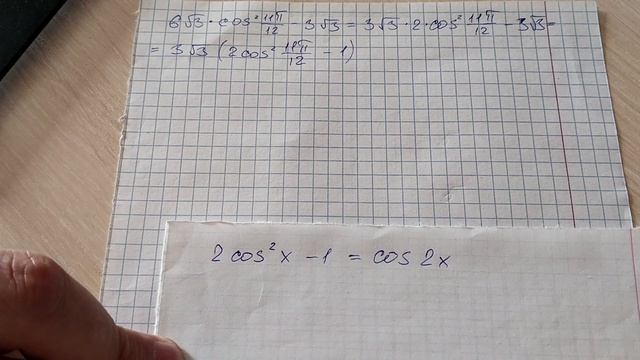 6√3 · cos² 11π/12 - 3√3 = 3√3 · 2 · cos² 11π/12 - 3√3 =
= 3√3 (2cos² 11π/12 - 1)
2 cos² x - 1 = cos 2x